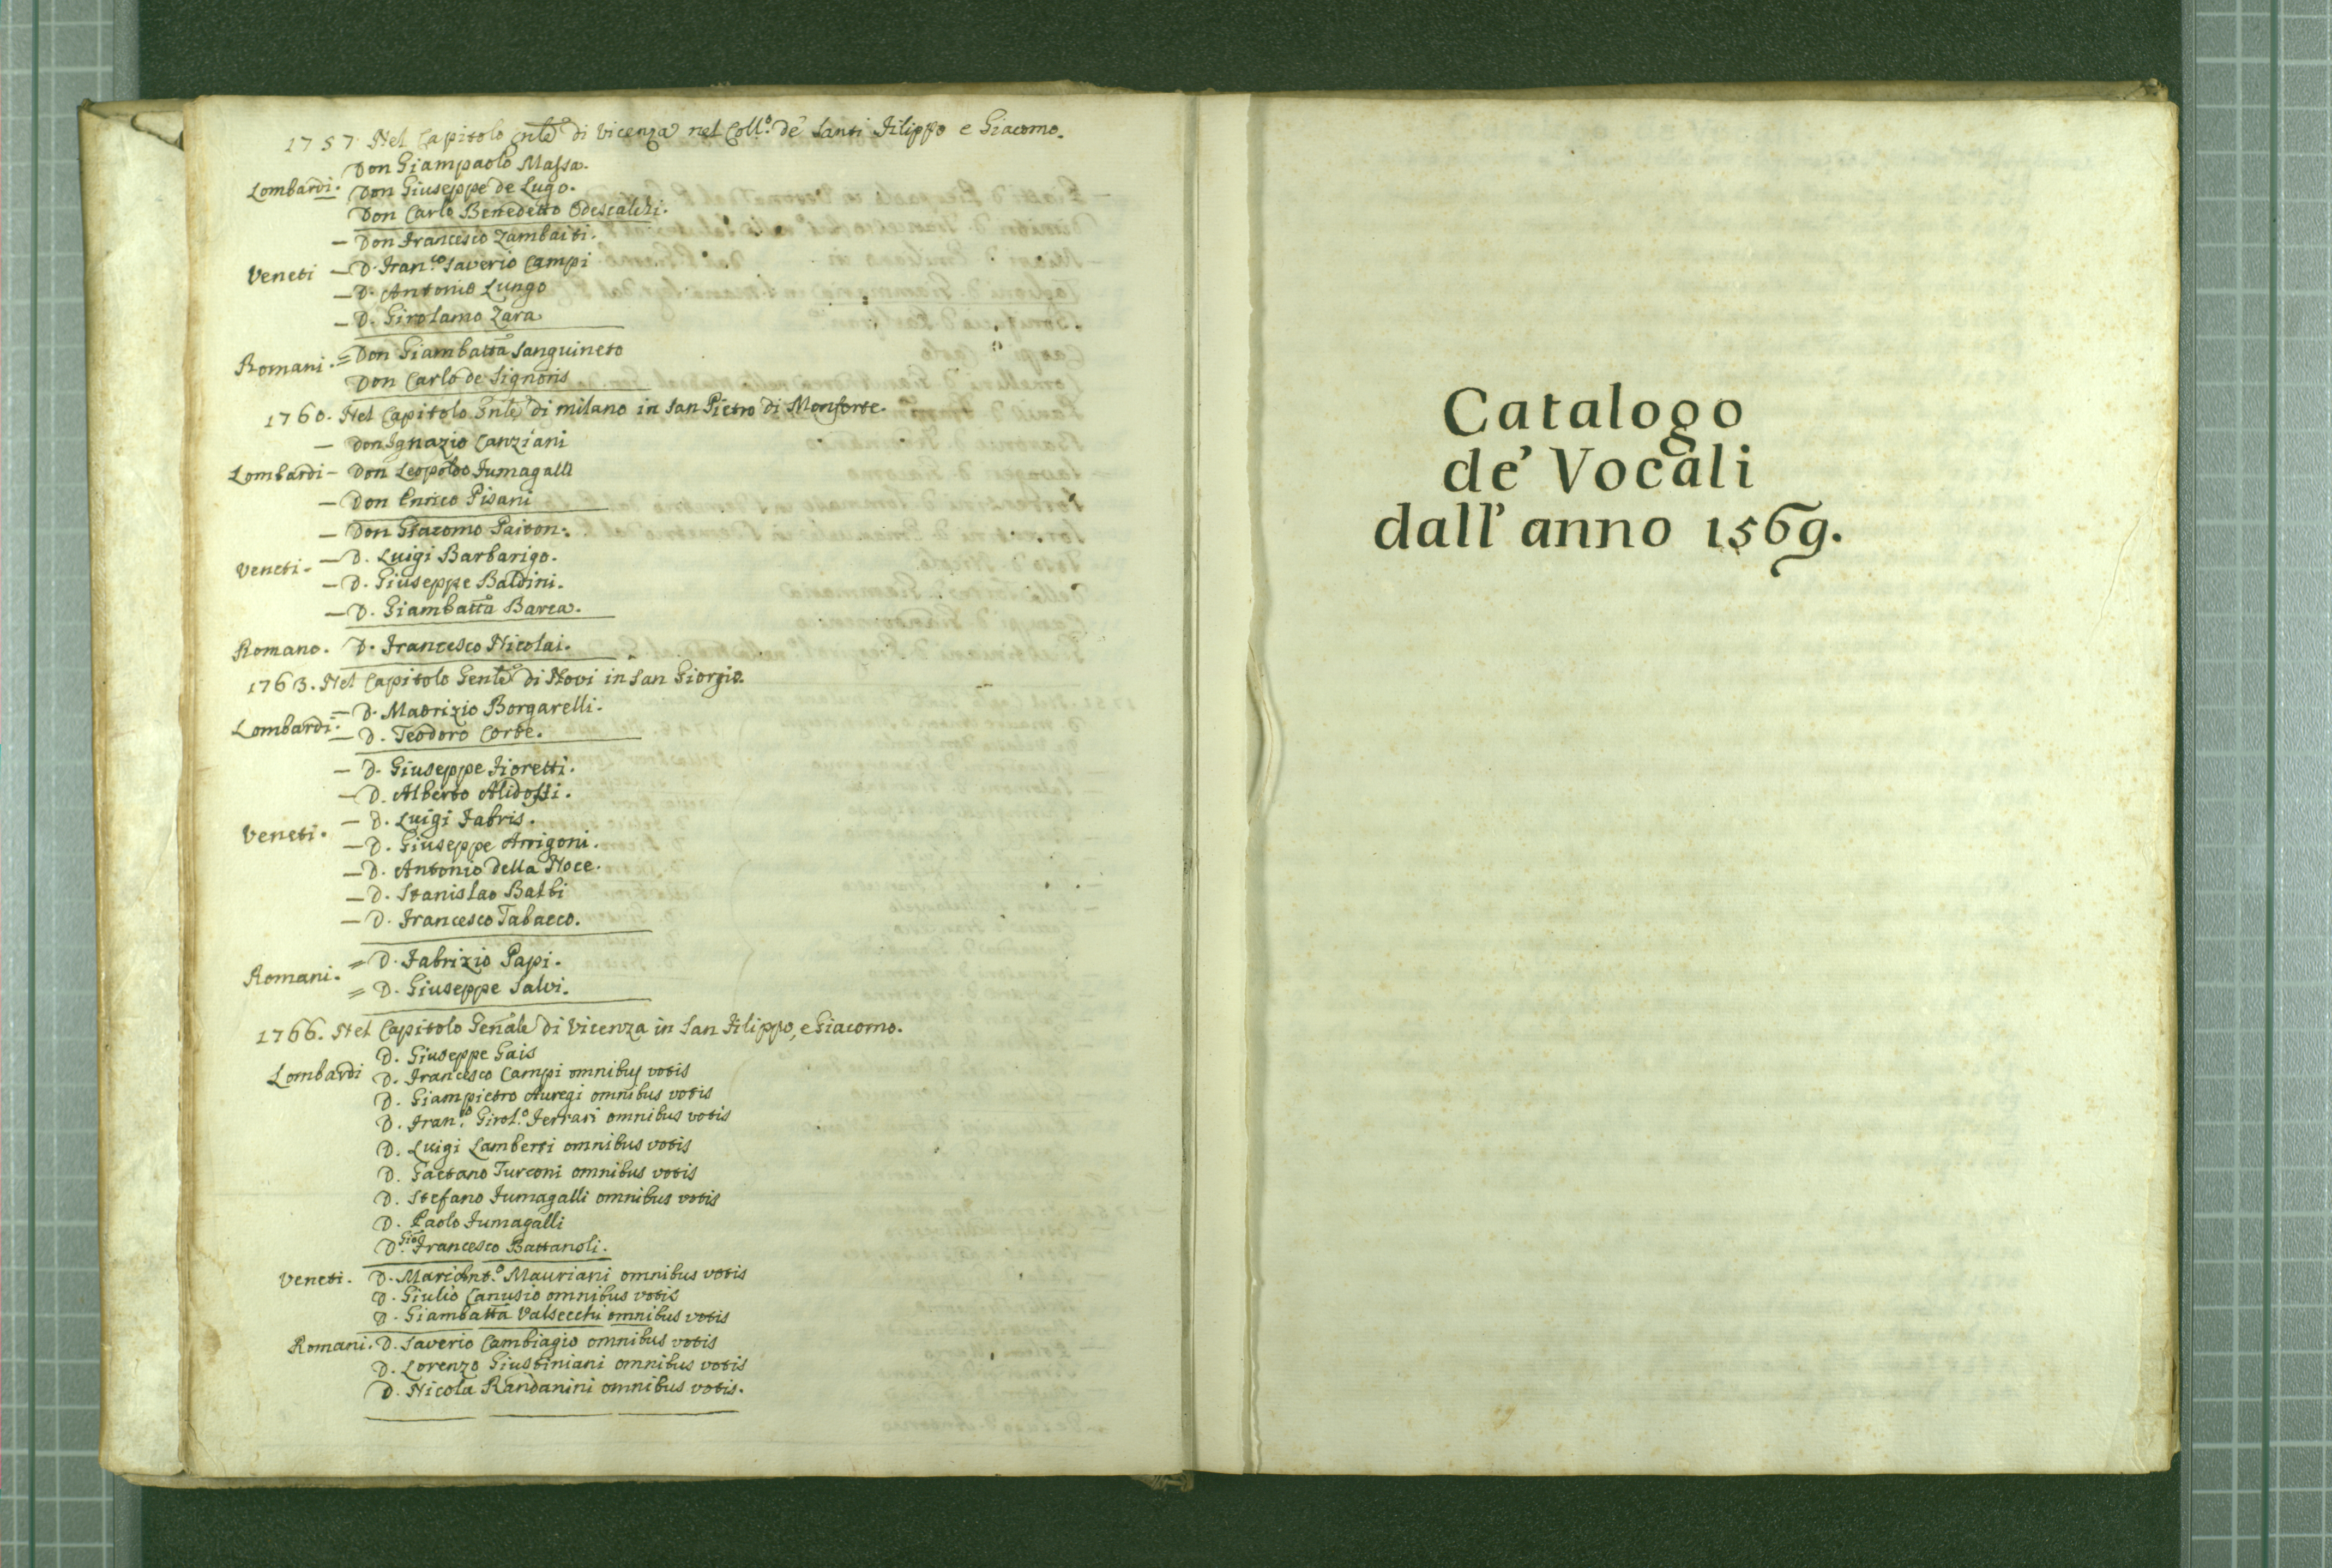 1757. Nel Capitolo Gnle di Vicenza nel Coll.o de' Santi Filippo e Giacomo.
Don Giampaolo Massa.
Lombardi. Don Giuseppe de Lugo.
Don Carlo Benedetto Odescalchi.
— Don Francesco Zambaiti.
Veneti — D. Fran.co Saverio Campi
— D. Antonio Lungo
— D. Girolamo Zara
Romani. = Don Giambatta Sanguineto
Don Carlo de Signoris
1760. Nel Capitolo Gnle di Milano in San Pietro di Monforte.
— Don Ignazio Canziani
Lombardi — Don Leopoldo Fumagalli
— Don Enrico Pisani
— Don Giacomo Paitoni.
Veneti. — D. Luigi Barbarigo.
— D. Giuseppe Baldini.
— D. Giambatta Barca.
Romano. D. Francesco Nicolai.
1763. Nel Capitolo Genle di Novi in San Giorgio.
— D. Maurizio Borgarelli.
Lombardi. — D. Teodoro Corte.
— D. Giuseppe Fioretti.
— D. Alberto Alidossi.
— D. Luigi Fabris.
Veneti. — D. Giuseppe Arrigoni.
— D. Antonio della Noce.
— D. Stanislao Balbi
— D. Francesco Tabacco.
Romani. = D. Fabrizio Papi.
= D. Giuseppe Salvi.
1766. Nel Capitolo Genale di Vicenza in San Filippo, e Giacomo.
D. Giuseppe Gais
Lombardi D. Francesco Campi omnibus votis
D. Giampietro Auregi omnibus votis
D. Fran.co Girol.o Ferrari omnibus votis
D. Luigi Lamberti omnibus votis
D. Gaetano Turconi omnibus votis
D. Stefano Fumagalli omnibus votis
D. Paolo Fumagalli
D. Gio Francesco Battanoli.
Veneti. D. Mariant.o Mauriani omnibus votis
D. Giulio Canusio omnibus votis
D. Giambatta Valsecchi omnibus votis
Romani. D. Saverio Cambiagio omnibus votis
D. Lorenzo Giustiniani omnibus votis
D. Nicola Randanini omnibus votis.
Catalogo
de' Vocali
dall' anno 1569.